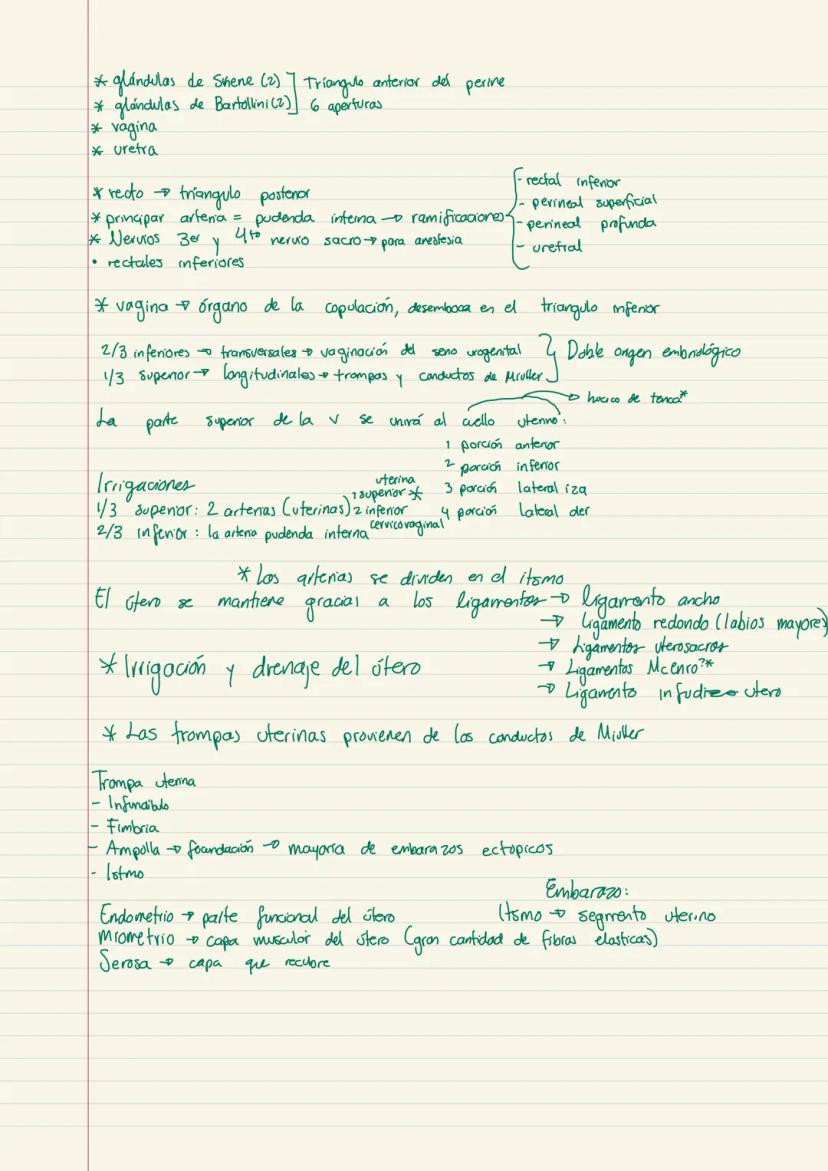 * glándulas de Skene (2) ] Triangulo anterior del perine
* glándulas de Bartollini (2) ] 6 aperturas
* vagina
* uretra
* recto → triangulo posterior
* principar arteria = pudenda interna → ramificaciones
- rectal inferior
- perineal superficial
- perineal profunda
- uretral
* Nervios 3er y 4to nervio sacro → para anestesia
• rectales inferiores
* vagina → órgano de la copulación, desemboca en el triangulo inferior
2/3 inferiores → transversales → vaginación del seno urogenital } Doble origen embriológico
1/3 superior → longitudinales → trompas y conductos de Muller
→ hocico de tenca*
La parte superior de la v se unirá al cuello uterino:
1 porción anterior
2 porción inferior
3 porción lateral izq
4 porción lateral der
Irrigaciones
1/3 superior: 2 arterias (uterinas) 1 superior * uterina
2 inferior cervicovaginal
2/3 inferior: la arteria pudenda interna
* Las arterias se dividen en el itsmo
El útero se mantiene gracial a los ligamentos → ligamento ancho
→ Ligamento redondo (labios mayore)
→ Ligamentos uterosacros
→ Ligamentos Mcenro?*
→ Ligamento utero
* Irrigación y drenaje del útero
* Las trompas uterinas provienen de los conductos de Muller
Trompa uterina
- Infundibulo
- Fimbria
- Ampolla → foundación → mayoria de embarazos ectopicos
- Istmo
Embarazo:
Endometrio → parte funcional del útero
Itsmo → segmento uterino
Miometrio → capa muscular del útero (gran cantidad de fibras elasticas)
Serosa → capa que recubre